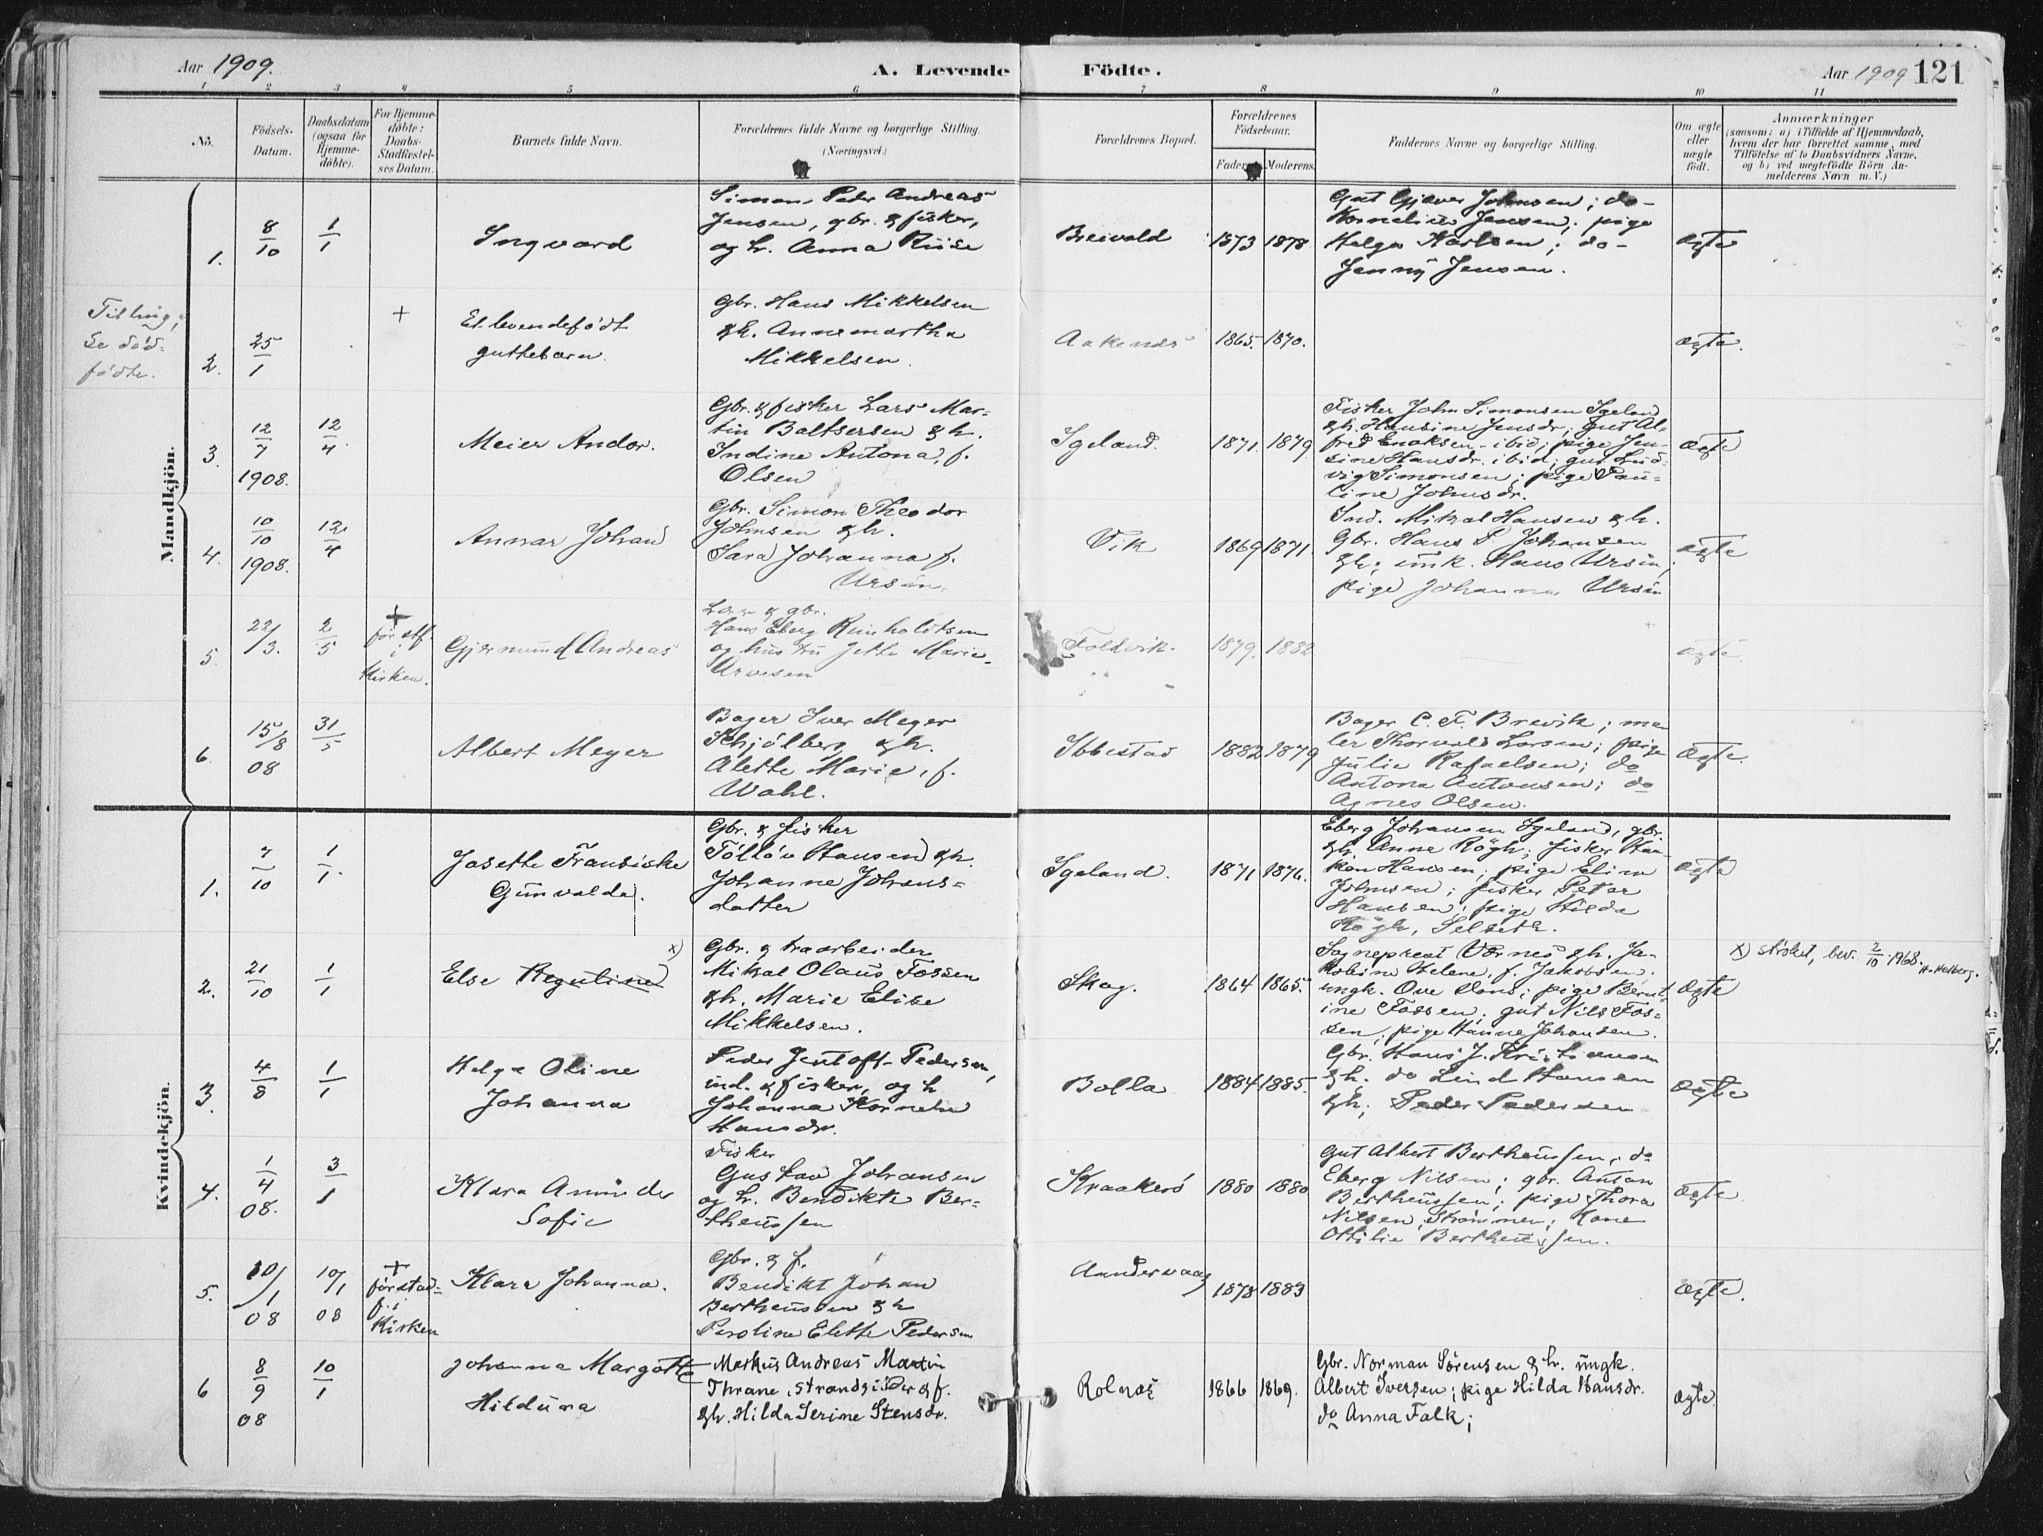 Aar 1909.
A. Levende Födte.
Aar 1909 121
1 2 3 4 5 6 7 8 9 10 11
No.
Födsels-
Datum.
Daabsdatum
(ogsaa for
Hjemme-
döbte).
For Hjemme-
döbte:
Daabs-
Stadfæstel-
ses Datum.
Barnets fulde Navn.
Forældrenes fulde Navne og borgerlige Stilling.
(Næringsvei.)
Forældrenes Bopæl.
Forældrenes
Födselsaar.
Faderens Moderens
Faddernes Navne og borgerlige Stilling.
Om ægte
eller
uægte
födt.
Anmærkninger
(saasom: a) i Tilfælde af Hjemmedaab,
hvem der har forrettet samme, med
Tilföielse af to Daabsvidners Navne,
og b) ved uægtefödte Börn An-
melderens Navn m. V.)
Mandkjön.
1.
8/10
1/1
Ingvard
Simon Peder Andreas
Jensen, gbr. & fisker,
og h. Anna Risse
Breivold
1873 1878
Gut Gjæver Johnsen; do
Kornelius Jensen; pige
Helga Karlsen; do
Jenny Jensen.
ægte
Tilling,
se død-
fødte.
2.
25/1
+
Et levendefödt
guttebarn.
Gbr. Hans Mikkelsen
&h. Annemartha
Mikkelsen.
Aakenes
1865. 1870.
ægte.
3.
12/7
1908.
12/4
Meier Andor.
Gbr. & fisker Lars Mar-
tin Baltsersen &h.
Indine Antona, f.
Olsen
Igeland.
1871. 1879
Fisker John Simonsen Igeland
&h. Hansine Jensdr; gut Al-
fred Enoksen ibid; pige Jen-
sine Hansdr. ibid; gut Lud-
vig Simonsen; pige Pau-
line Johnsdr.
ægte
4.
10/10
1908.
12/4
Annar Johan
Gbr. Simon Theodor
Johnsen &h.
Sara Johanna f.
Ursin.
Vik
1869 1871.
Ind. Mikal Hansen &h.
Gbr. Hans P. Johansen
&h; ungk. Hans Ursin,
pige Johanna Ursin
ægte
5.
22/3.
2/5
+
før stf.
i
Kirken.
Gjermund Andreas
Hans Eberg Reinholdtsen
og hustru Jette Marie
Foldvik.
1879. 1882
ægte.
6.
15/8
08
31/5
Albert Meyer
Bager Iver Meyer
Schjölberg &h.
Alette Marie, f.
Wahl.
Ibbestad
1882 1879
Bager C. F. Brevik; ma-
ler Thorvald Larsen; pige
Julie Rafaelsen; do
Antona Antonsen; do
Agnes Olsen.
Ægte.
Kvindekjön.
1.
7/10
1/1.
Josette Fransiske
Gunvalda.
Gbr. & fisker
Tollöv Hansen &h.
Johanne Johans-
datter
Igeland.
1871 1876.
Eberg Johansen Igeland, gbr.
&h. Anne Rögh; fisker Haa-
kon Hansen; pige Elina
Johnsen; fisker Peter
Hansen; pige Hilda
Rögh, Selseth.
ægte
2.
21/10
1/1
x)
Else Regeline
Gbr. & træarbeider
Mikal Olaus Fossen
&h. Marie Elise
Mikkelsen.
Skog.
1864 1865.
Sogneprest Vörnes &h. Ja-
kobine Helene, f. Jakobsen.
ungk. Ove Dons; pige Bernt-
ine Fossen; gut Nils Fos-
sen; pige Hanne Johansen.
ægte
x) strøket, bev. 2/10 1968.
H. Hetberg.
3.
4/8
1/1
Helga Oline
Johanna
Peder Jentoft Pedersen,
ind. & fisker, og h
Johanna Kornelia
Hansdr.
Bolla
1884 1885
Gbr. Hans J. Kristiansen
&h. do Lind Hansen
&h; Peder Pedersen
ægte
4.
1/4
08.
3/1
Klara Aminda
Sofie
Fisker
Gustav Johansen
og h. Bendikte Ber-
theussen
Kraakerö
1880 1880
Gut Albert Bertheussen, do
Eberg Nilsen; gbr. Anton
Bertheussen; pige Thora
Nilsen, Strømmen; Kone
Ottilie Bertheussen.
Ægte.
5.
10/1
08
10/1
08
+
før stad-
f. i
Kirken
Klara Johanna.
Gbr. & f.
Bendikt Johan
Bertheussen &h
Peroline Elette Pedersen
Aandervaag
1878 1883
ægte.
6
8/9
08
10/1
Johanna Margotte
Hilduna
Markus Andreas Martin
Thrane, strandsidder & f.
&h. Hilda Serine Stensdr.
Rolnæs
1866 1869.
Gbr. Norman Sørensen & h. ungk.
Albert Iversen; pige Hilda Hansdr.
do Anna Falk;
ægte.